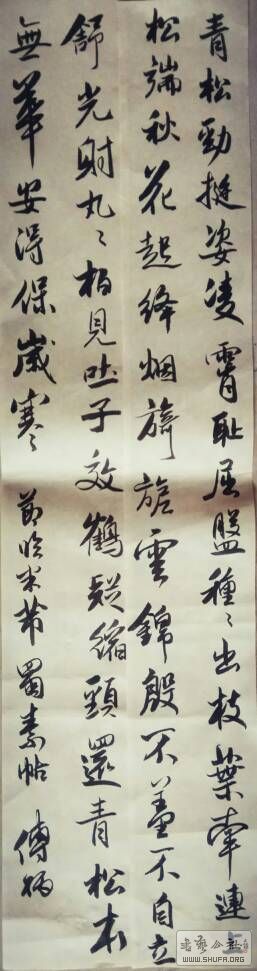 青松勁挺姿凌霄恥屈盤種〻出枝葉牽連上
松端秋花起絳烟旖旎雲錦殷不羞不自立
舒光射丸〻柏見吐子效鶴疑縮頸還青松本
無華安得保歲寒 節臨米芾蜀素帖 傅炳
書藝公社
WWW.SHUFA.ORG